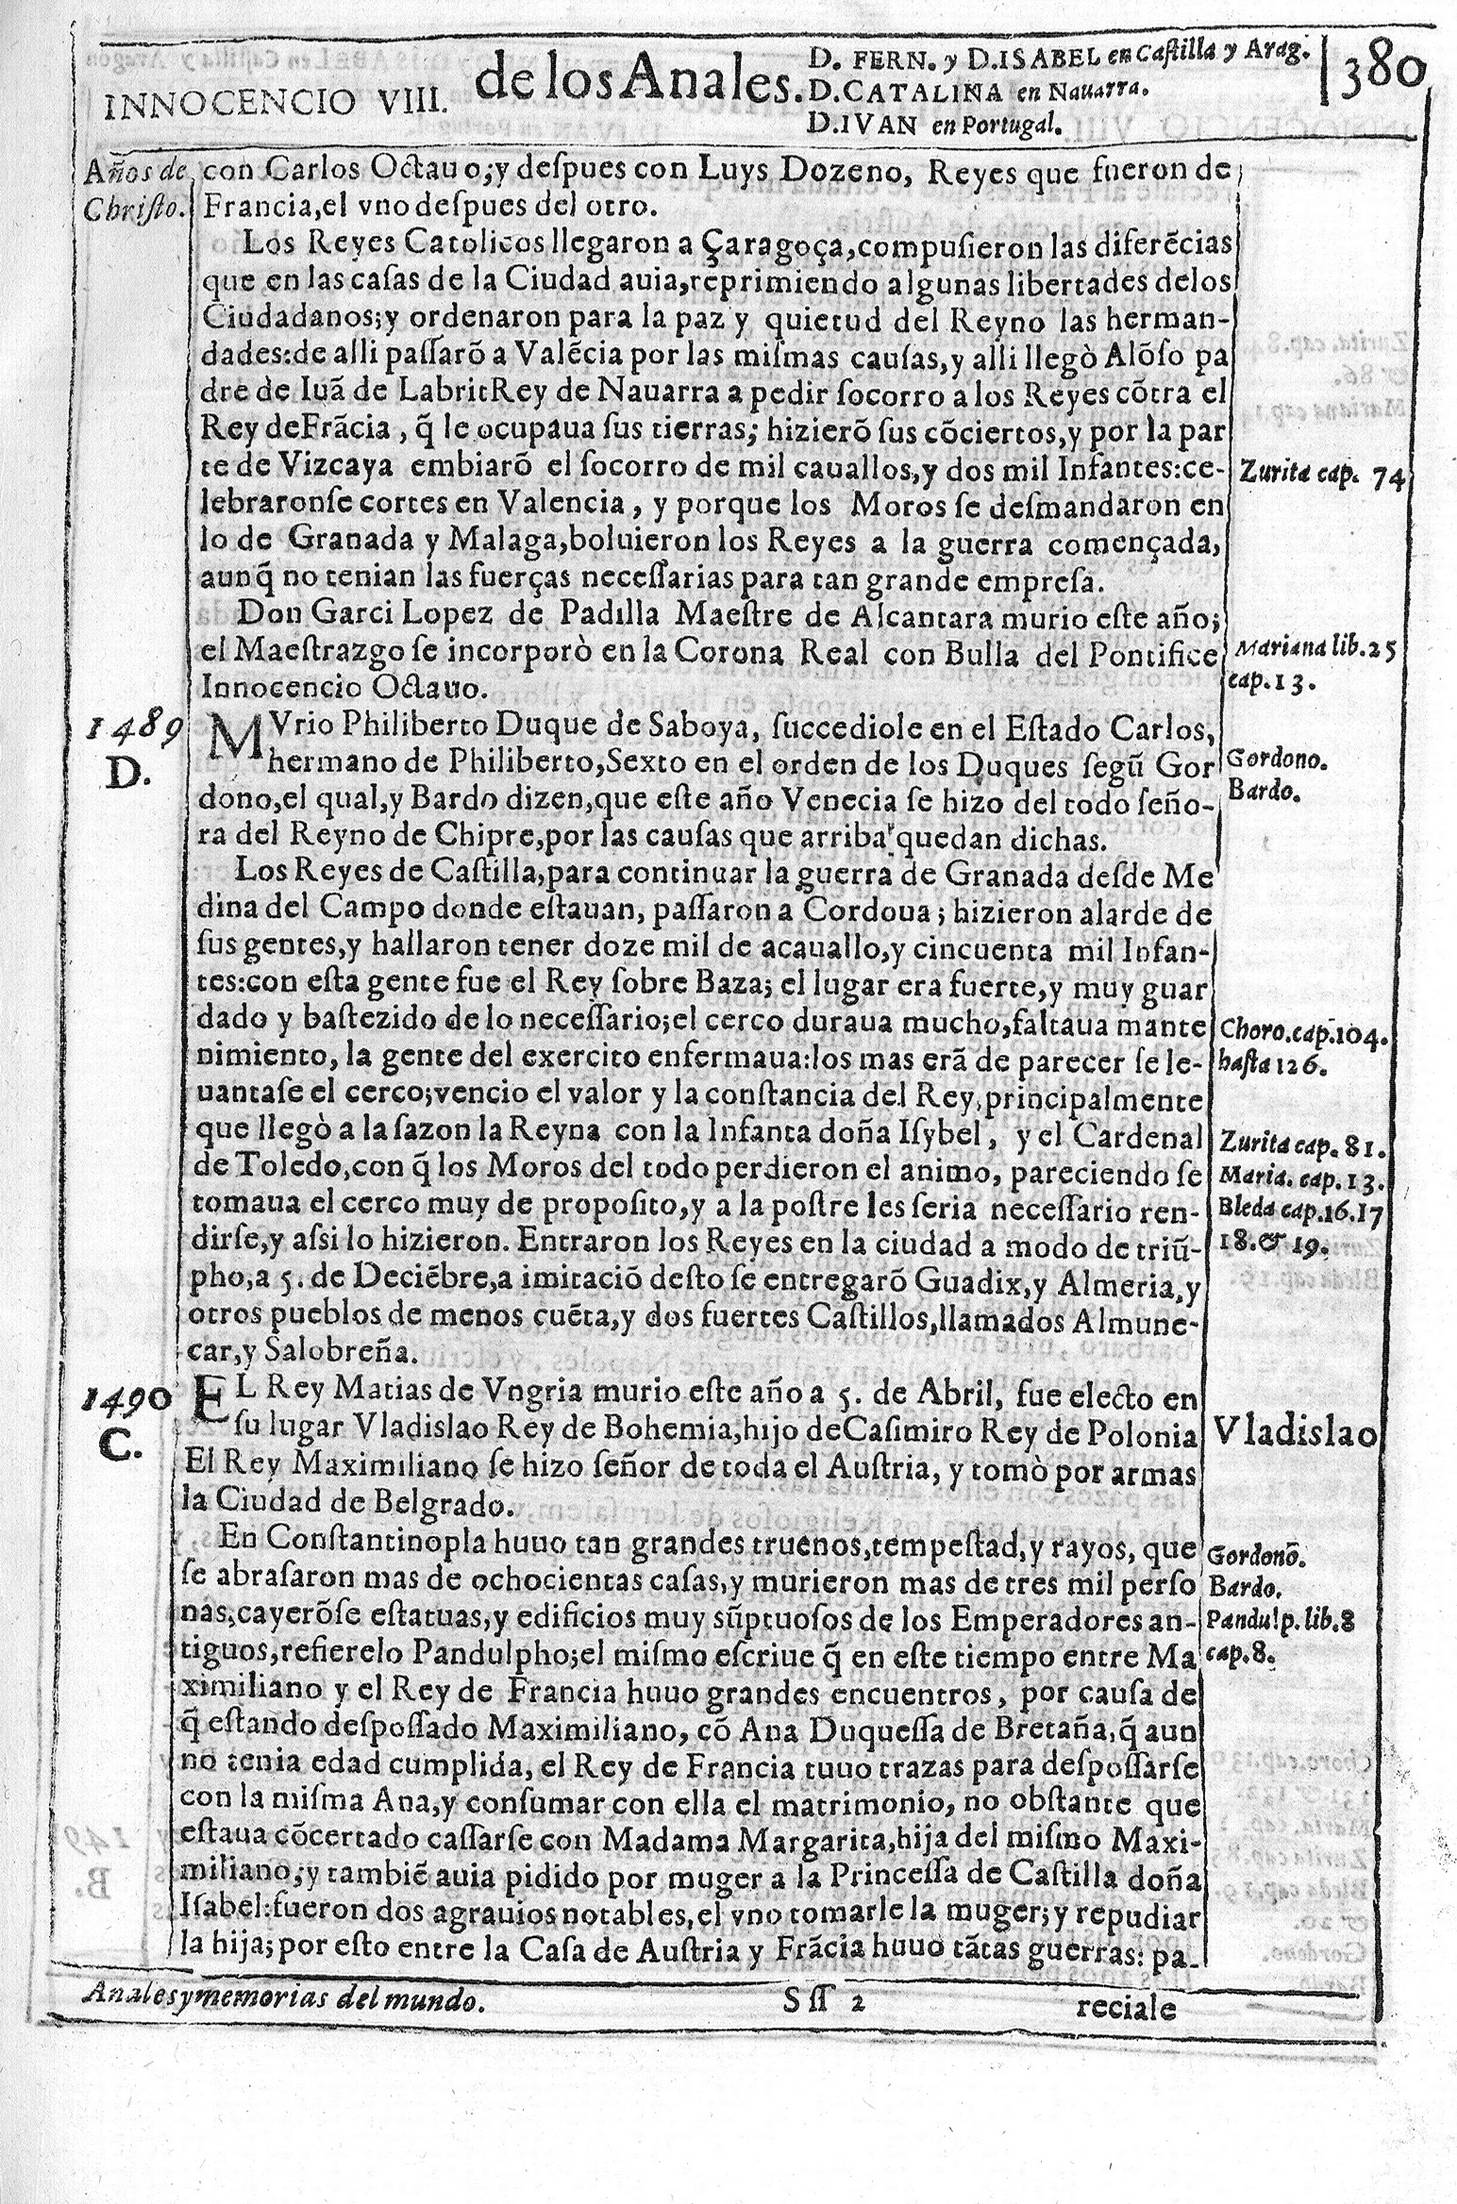 INNOCENCIO VIII. de los Anales. D. FERN. y D. ISABEL en Castilla y Arag.
D. CATALINA en Nauarra.
D. IVAN en Portugal.
380
Años de
Christo.
con Carlos Octauo; y despues con Luys Dozeno, Reyes que fueron de
Francia, el vno despues del otro.
Los Reyes Catolicos llegaron a Çaragoça, compusieron las diferẽcias
que en las casas de la Ciudad auia, reprimiendo algunas libertades delos
Ciudadanos; y ordenaron para la paz y quietud del Reyno las herman-
dades: de alli passarõ a Valẽcia por las mismas causas, y alli llegò Alõso pa
dre de Iuã de Labrit Rey de Nauarra a pedir socorro a los Reyes cõtra el
Rey de Frãcia, q̃ le ocupaua sus tierras; hizierõ sus cõciertos, y por la par
te de Vizcaya embiarõ el socorro de mil cauallos, y dos mil Infantes: ce-
Zurita cap. 74
lebraronse cortes en Valencia, y porque los Moros se desmandaron en
lo de Granada y Malaga, boluieron los Reyes a la guerra començada,
aunq̃ no tenian las fuerças necessarias para tan grande empresa.
Don Garci Lopez de Padilla Maestre de Alcantara murio este año;
el Maestrazgo se incorporò en la Corona Real con Bulla del Pontifice
Mariana lib. 25
Innocencio Octauo.
cap. 13.
1489
D.
MVrio Philiberto Duque de Saboya, succediole en el Estado Carlos,
hermano de Philiberto, Sexto en el orden de los Duques segũ Gor
Gordono.
dono, el qual, y Bardo dizen, que este año Venecia se hizo del todo seño-
Bardo.
ra del Reyno de Chipre, por las causas que arriba quedan dichas.
Los Reyes de Castilla, para continuar la guerra de Granada desde Me
dina del Campo donde estauan, passaron a Cordoua; hizieron alarde de
sus gentes, y hallaron tener doze mil de acauallo, y cincuenta mil Infan-
tes: con esta gente fue el Rey sobre Baza; el lugar era fuerte, y muy guar
dado y bastezido de lo necessario; el cerco duraua mucho, faltaua mante
Choro. cap. 104.
nimiento, la gente del exercito enfermaua: los mas erã de parecer se le-
hasta 126.
uantase el cerco; vencio el valor y la constancia del Rey, principalmente
que llegò a la sazon la Reyna con la Infanta doña Isybel, y el Cardenal
Zurita cap. 81.
de Toledo, con q̃ los Moros del todo perdieron el animo, pareciendo se
Maria. cap. 13.
tomaua el cerco muy de proposito, y a la postre les seria necessario ren-
Bleda cap. 16. 17
dirse, y assi lo hizieron. Entraron los Reyes en la ciudad a modo de triũ-
18. & 19.
pho, a 5. de Deciẽbre, a imitaciõ desto se entregarõ Guadix, y Almeria, y
otros pueblos de menos cuẽta, y dos fuertes Castillos, llamados Almune-
car, y Salobreña.
1490
C.
EL Rey Matias de Vngria murio este año a 5. de Abril, fue electo en
su lugar Vladislao Rey de Bohemia, hijo de Casimiro Rey de Polonia
Vladislao
El Rey Maximiliano se hizo señor de toda el Austria, y tomò por armas
la Ciudad de Belgrado.
En Constantinopla huuo tan grandes truenos, tempestad, y rayos, que
Gordonõ.
se abrasaron mas de ochocientas casas, y murieron mas de tres mil perso
Bardo.
nas, cayerõse estatuas, y edificios muy sũptuosos de los Emperadores an-
Pandulp. lib. 8
tiguos, refierelo Pandulpho; el mismo escriue q̃ en este tiempo entre Ma
cap. 8.
ximiliano y el Rey de Francia huuo grandes encuentros, por causa de
q̃ estando despossado Maximiliano, cõ Ana Duquessa de Bretaña, q̃ aun
no tenia edad cumplida, el Rey de Francia tuuo trazas para despossarse
con la misma Ana, y consumar con ella el matrimonio, no obstante que
estaua cõcertado cassarse con Madama Margarita, hija del mismo Maxi-
miliano; y tambiẽ auia pidido por muger a la Princessa de Castilla doña
Isabel: fueron dos agrauios notables, el vno tomarle la muger; y repudiar
la hija; por esto entre la Casa de Austria y Frãcia huuo tãtas guerras: pa-
Anales y memorias del mundo. Sss 2 reciale